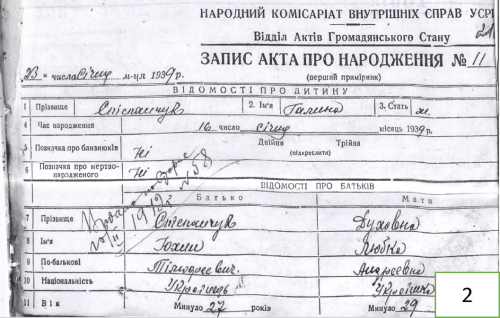 НАРОДНИЙ КОМІСАРІАТ ВНУТРІШНІХ СПРАВ УСРР
Відділ Актів Громадянського Стану 21
ЗАПИС АКТА ПРО НАРОДЖЕННЯ № 11
23 " числа січня м-ця 1939 р. (перший примірник)
ВІДОМОСТІ ПРО ДИТИНУ
1 Прізвище Степанчук 2. Ім'я Галина 3. Стать ж.
4 Час народження 16 число січня місяць 1939 р.
5 Позначка про близнюків Ні Двійня Трійня
(підкреслити)
6 Позначка про мертвонародженого Ні
ВІДОМОСТІ ПРО БАТЬКІВ
Батько Мати
7 Прізвище Степанчук Духовна
8 Ім'я Юхим Любка
9 По-батькові Тимофеевич. Андреевна
10 Національність Українець Українка
11 Вік Минуло 27 років Минуло 29
2